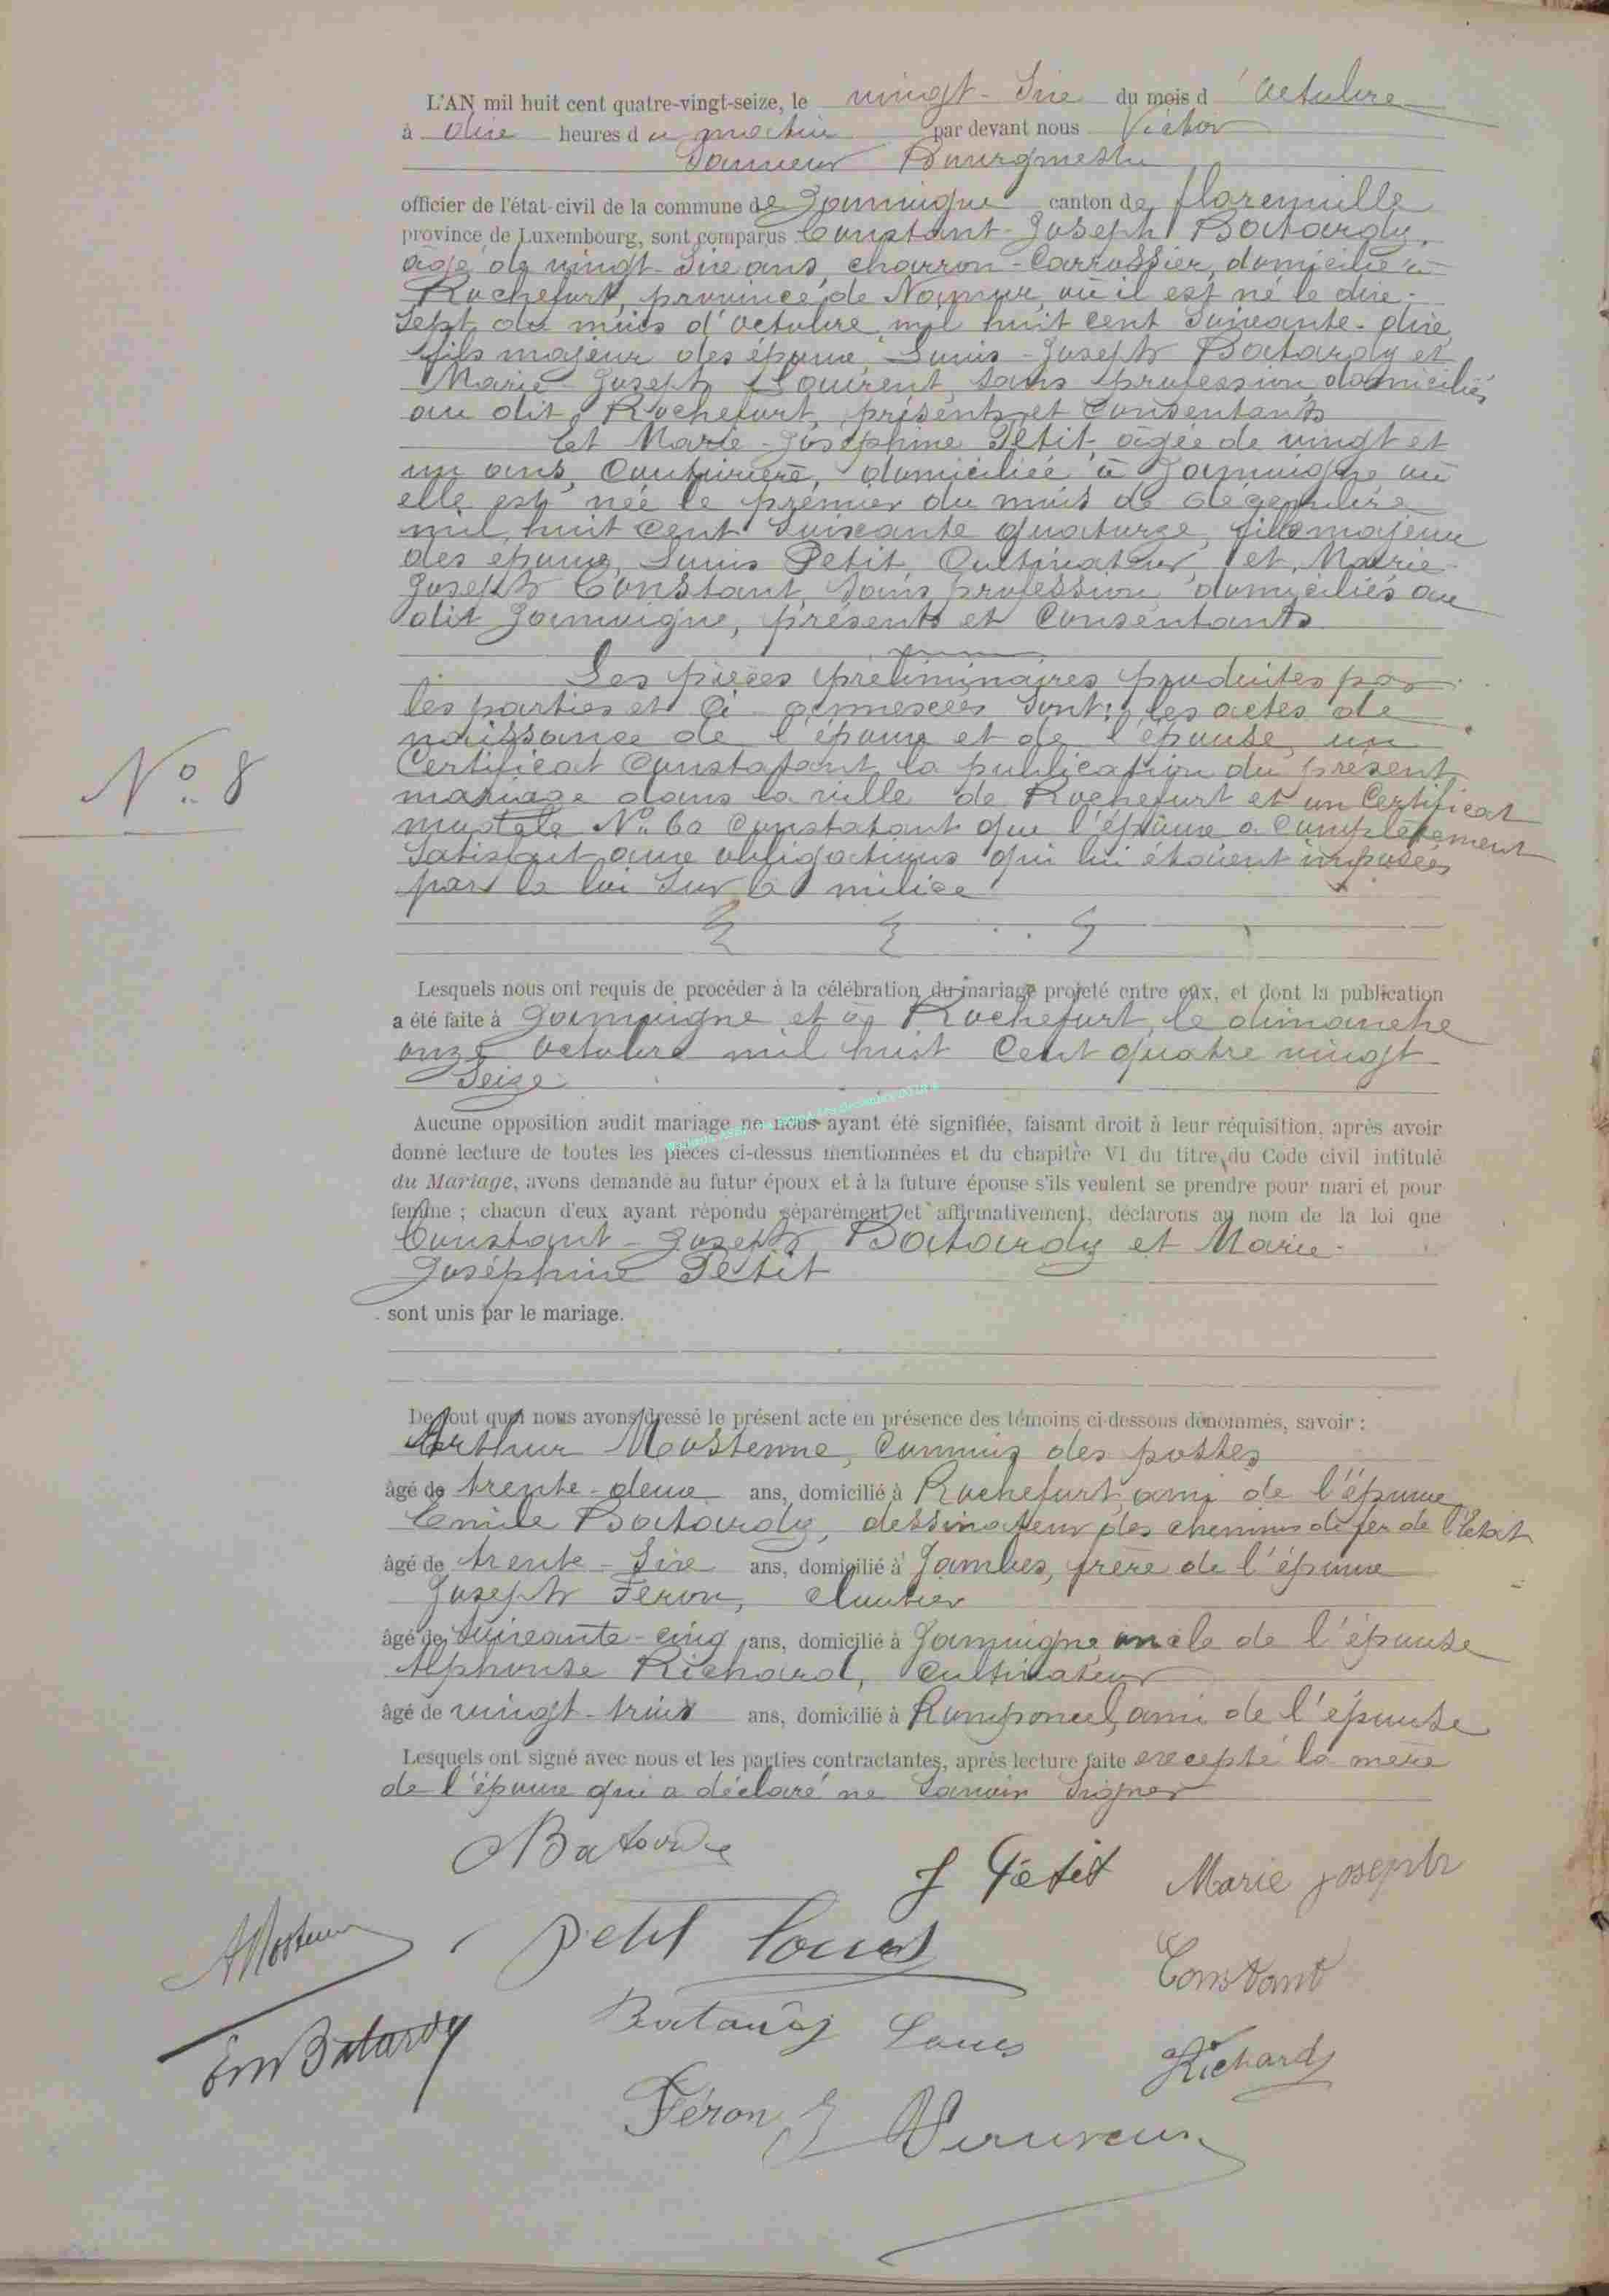 L'AN mil huit cent quatre-vingt-seize, le vingt-six du mois d'octobre
à dix heures du matin par devant nous Victor
Bourgmestre
officier de l'état-civil de la commune de Jamoigne canton de Florenville
province de Luxembourg, sont comparus Constant-Joseph Batardy,
âgé de vingt-six ans, charron-carrossier, domicilié à
Rochefort, province de Namur, où il est né le dix-
sept du mois d'octobre mil huit cent soixante-dix,
fils majeur des époux Louis-Joseph Batardy et
Marie-Joseph sans profession domiciliés
au dit Rochefort, présents et consentants
Et Marie-Joséphine Petit, âgée de vingt et
un ans, couturière, domiciliée à Jamoigne où
elle est née le premier du mois de décembre
mil huit cent soixante quatorze, fille majeure
des époux, Louis Petit, cultivateur, et Marie-
Joseph Constant, sans profession, domiciliés au
dit Jamoigne, présents et consentants
Les pièces préliminaires produites par
les parties et ci-annexées sont: les actes de
naissance de l'époux et de l'épouse, un
certificat constatant la publication du présent
mariage dans la ville de Rochefort et un certificat
modèle N° 60 constatant que l'époux a complètement
satisfait aux obligations qui lui étaient imposées
par la loi sur la milice
N° 8
Lesquels nous ont requis de procéder à la célébration du mariage projeté entre eux, et dont la publication
a été faite à Jamoigne et à Rochefort, le dimanche
onze octobre mil huit cent quatre vingt
seize
Aucune opposition audit mariage ne nous ayant été signifiée, faisant droit à leur réquisition, après avoir
donné lecture de toutes les pièces ci-dessus mentionnées et du chapitre VI du titre du Code civil intitulé
du Mariage, avons demandé au futur époux et à la future épouse s'ils veulent se prendre pour mari et pour
femme ; chacun d'eux ayant répondu séparément et affirmativement, déclarons au nom de la loi que
Constant-Joseph Batardy et Marie-
Joséphine Petit
sont unis par le mariage.
De tout quoi nous avons dressé le présent acte en présence des témoins ci-dessous dénommés, savoir :
Arthur Mostenne, commis des postes
âgé de trente-deux ans, domicilié à Rochefort, ami de l'époux
Emile Batardy, dessinateur des chemins de fer de l'Etat
âgé de trente-six ans, domicilié à Jambes, frère de l'époux
Joseph Féron, cloutier
âgé de soixante-cinq ans, domicilié à Jamoigne oncle de l'épouse
Alphonse Richard, cultivateur
âgé de vingt-trois ans, domicilié à Romponcel, ami de l'épouse
Lesquels ont signé avec nous et les parties contractantes, après lecture faite excepté la mère
de l'époux qui a déclaré ne savoir signer
Batardy
J Petit Marie Joseph
A Mostenne Petit Louis Constant
Em Batardy Batardy Louis Richard
Féron J